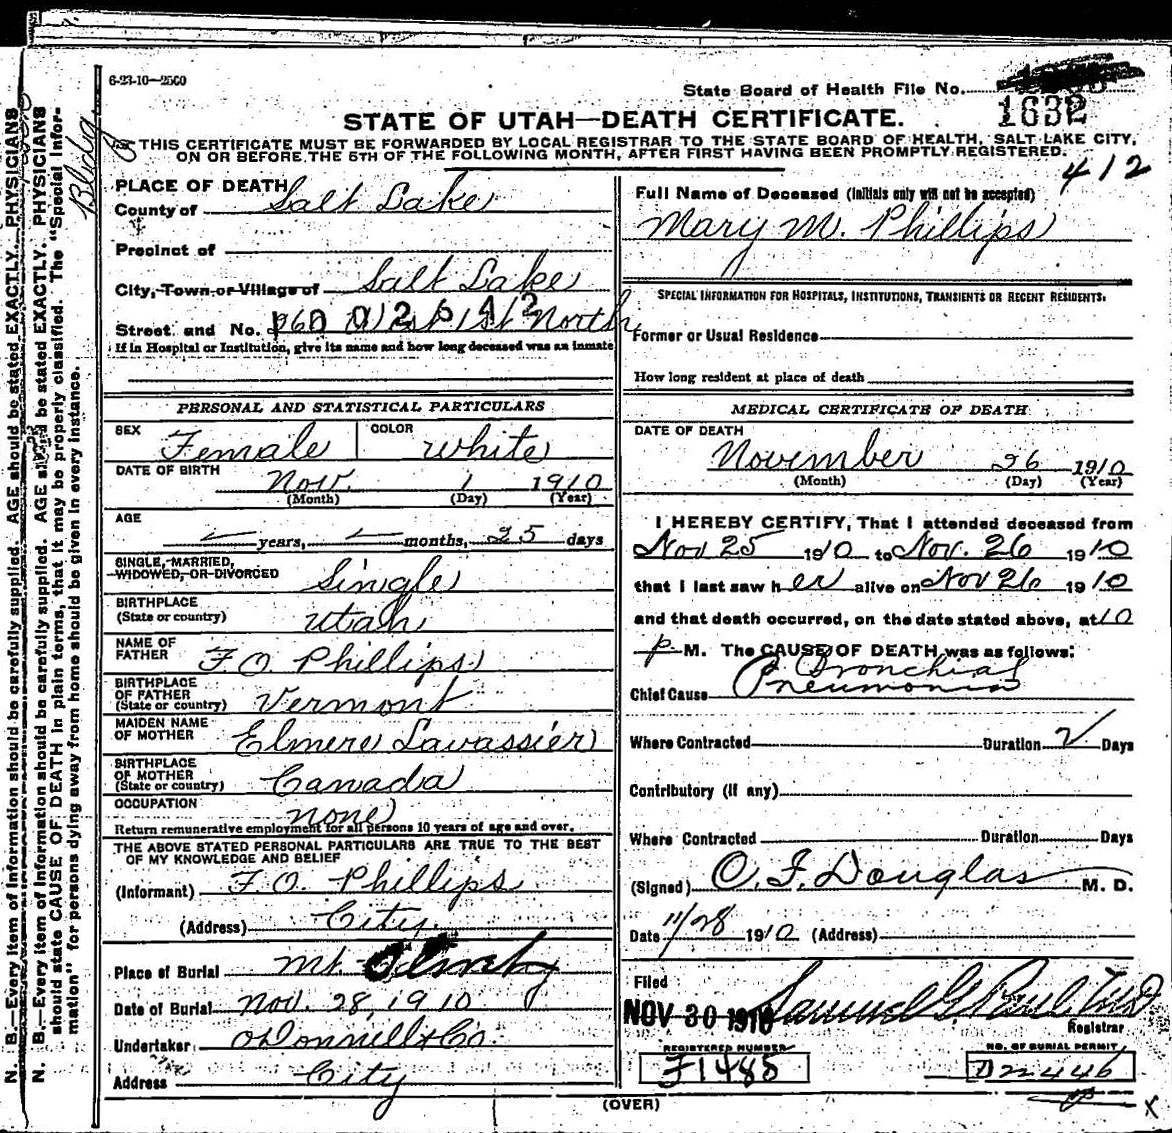 6-23-10—2500
State Board of Health File No.
1632
STATE OF UTAH—DEATH CERTIFICATE.
THIS CERTIFICATE MUST BE FORWARDED BY LOCAL REGISTRAR TO THE STATE BOARD OF HEALTH, SALT LAKE CITY,
ON OR BEFORE THE 5TH OF THE FOLLOWING MONTH, AFTER FIRST HAVING BEEN PROMPTLY REGISTERED.
412
Bldg
PLACE OF DEATH
County of Salt Lake
Precinct of
City, Town or Village of Salt Lake
Street and No. West 1st North
If in Hospital or Institution, give its name and how long deceased was an inmate
PERSONAL AND STATISTICAL PARTICULARS
SEX Female COLOR White
DATE OF BIRTH Nov. 1 1910
(Month) (Day) (Year)
AGE years, months, 25 days
SINGLE, MARRIED,
WIDOWED, OR DIVORCED Single
BIRTHPLACE
(State or country) Utah
NAME OF
FATHER F. O. Phillips
BIRTHPLACE
OF FATHER
(State or country) Vermont
MAIDEN NAME
OF MOTHER Elmere Lavassier
BIRTHPLACE
OF MOTHER
(State or country) Canada
OCCUPATION none
Return remunerative employment for all persons 10 years of age and over.
THE ABOVE STATED PERSONAL PARTICULARS ARE TRUE TO THE BEST
OF MY KNOWLEDGE AND BELIEF
(Informant) F. O. Phillips
(Address) City
Place of Burial Mt.
Date of Burial Nov. 28, 1910
Undertaker O'Donnell & Co.
Address City
Full Name of Deceased (Initials only will not be accepted)
Mary M. Phillips
SPECIAL INFORMATION FOR HOSPITALS, INSTITUTIONS, TRANSIENTS OR RECENT RESIDENTS:
Former or Usual Residence
How long resident at place of death
MEDICAL CERTIFICATE OF DEATH
DATE OF DEATH
November 26 1910
(Month) (Day) (Year)
I HEREBY CERTIFY, That I attended deceased from
Nov 25 1910 to Nov. 26 1910
that I last saw her alive on Nov 26 1910
and that death occurred, on the date stated above, at 10
p M. The CAUSE OF DEATH was as follows:
Bronchial
Chief Cause Pneumonia
Where Contracted Duration 2 Days
Contributory (if any)
Where Contracted Duration Days
(Signed) C. F. Douglas M. D.
Date 11/28 1910 (Address)
Filed
NOV 30 1910 Samuel G. Paul MD
Registrar
REGISTERED NUMBER NO. OF BURIAL PERMIT
F1485 D2446
(OVER)
X
N. B.—Every item of information should be carefully supplied. AGE should be stated EXACTLY. PHYSICIANS
N. B.—Every item of information should be carefully supplied. AGE should be stated EXACTLY. PHYSICIANS
should state CAUSE OF DEATH in plain terms, that it may be properly classified. The "Special Infor-
mation" for persons dying away from home should be given in every instance.